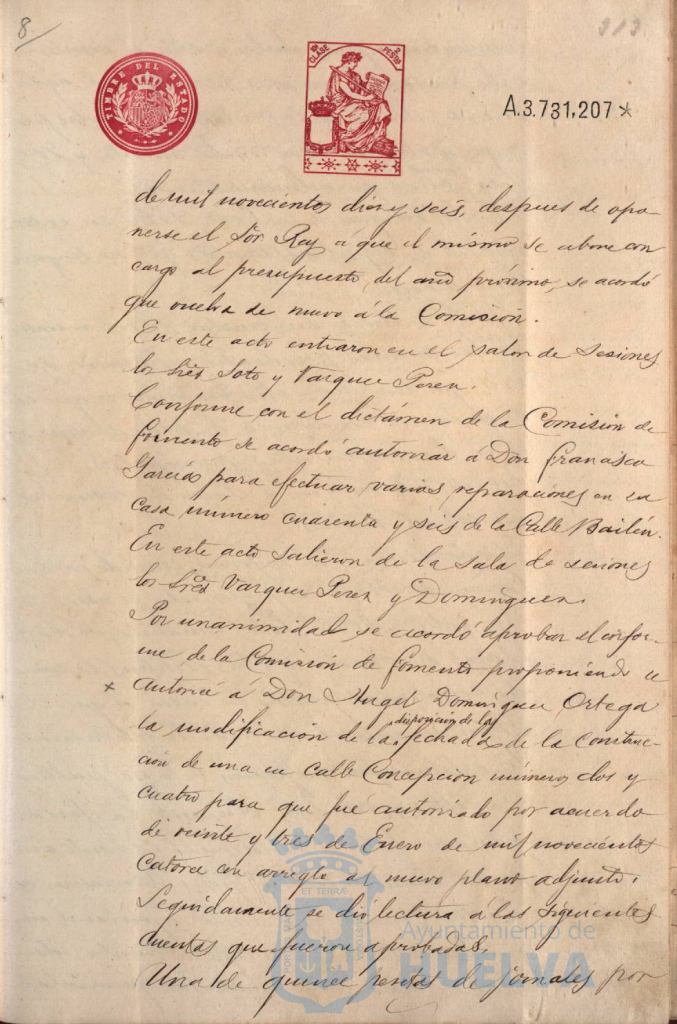 8/
313
TIMBRE DEL ESTADO
CLASE 8ª PESETAS 2
A.3.731,207*
de mil novecientos dies y seis, despues de opo-
nerse el Sor Rey á que el mismo se abone con
cargo al presupuesto del año próximo, se acordó
que vuelva de nuevo á la Comisión.
En este acto entraron en el salon de sesiones
los Sres Soto y Vazquez Perez.
Conforme con el dictámen de la Comisión de
fomento se acordó autorizar á Don Francisco
García para efectuar varias reparaciones en su
casa número cuarenta y seis de la Calle Bailén.
En este acto salieron de la sala de sesiones
los Sres Vazquez Perez y Dominguez.
Por unanimidad se acordó aprobar el infor-
me de la Comisión de fomento proponiendo se
x autorice á Don Angel Dominguez Ortega
disposición de la
la modificación de la fachada de la construc-
ción de una en calle Concepcion números dos y
cuatro para que fué autorizado por acuerdo
de veinte y tres de Enero de mil novecientos
catorce con arreglo al nuevo plano adjunto.
Seguidamente se dio lectura á las siguientes
cuentas que fueron aprobadas.
Una de quince pesetas de jornales por
Ayuntamiento de
HUELVA